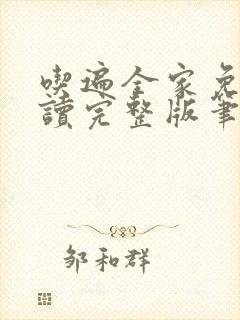 喫遍全家免
讀完整版筆
邹和群